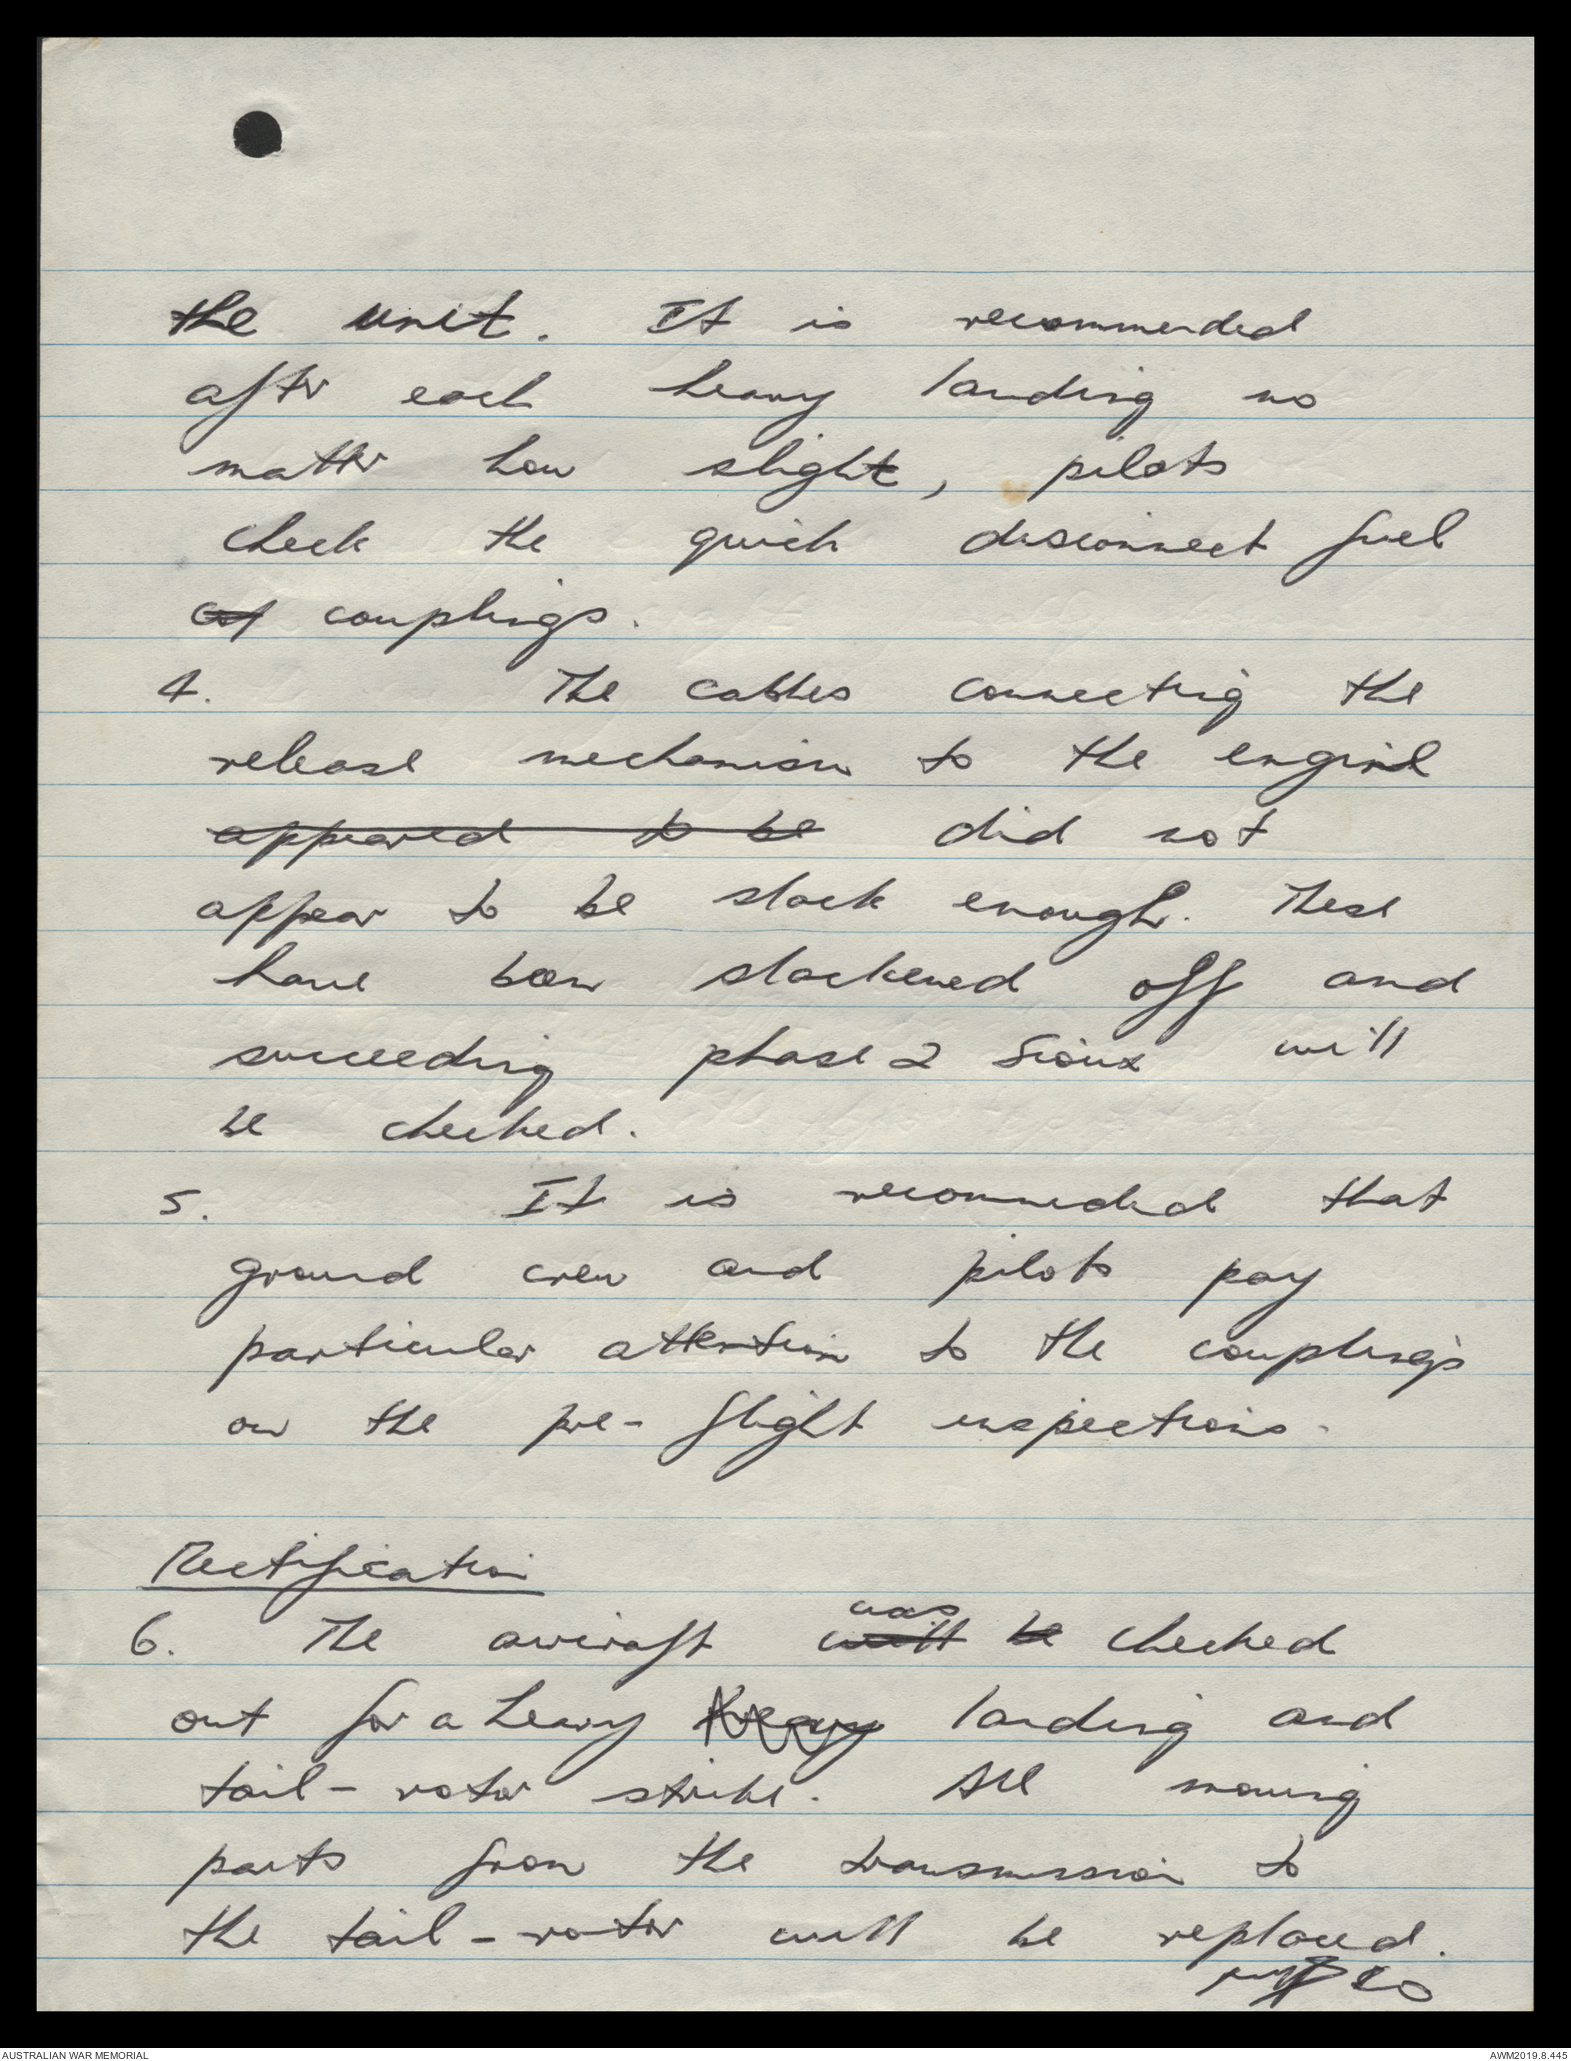 the unit. It is recommended
after each heavy landing no
matter how slight, pilots
check the quick disconnect fuel
couplings.
4. The cables connecting the
release mechanism to the engine
appeared to be did not
appear to be slack enough. These
have been slackened off and
succeeding phase 2 Sioux will
be checked.
5. It is recommeded that
ground crew and pilots pay
particular attention to the couplings
on the pre-flight inspections.
Rectification
was
6. The aircraft will be checked
out for a heavy heavy landing and
tail-rotor strike. All moving
parts from the transmission to
the tail-rotor will be replaced.
AUSTRALIAN WAR MEMORIAL
AWM2019.8.445